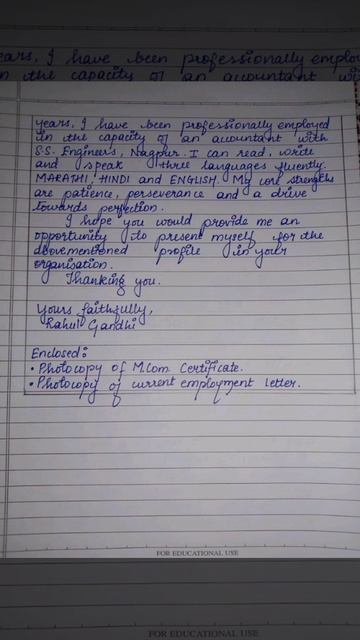 ears, I have been professionally employ
n the capacity of an accountant wi
years, I have been professionally employed
in the capacity of an accountant with
S.S. Engineers, Nagpur. I can read, write
and speak three languages fluently.
MARATHI, HINDI and ENGLISH. My core strengths
are patience, perseverance and a drive
towards perfection.
I hope you would provide me an
opportunity to present myself for the
abovementioned profile in your
organisation.
Thanking you.
Yours faithfully,
Rahul Gandhi
Enclosed:
• Photocopy of M.Com Certificate.
• Photocopy of current employment letter.
FOR EDUCATIONAL USE
FOR EDUCATIONAL USE